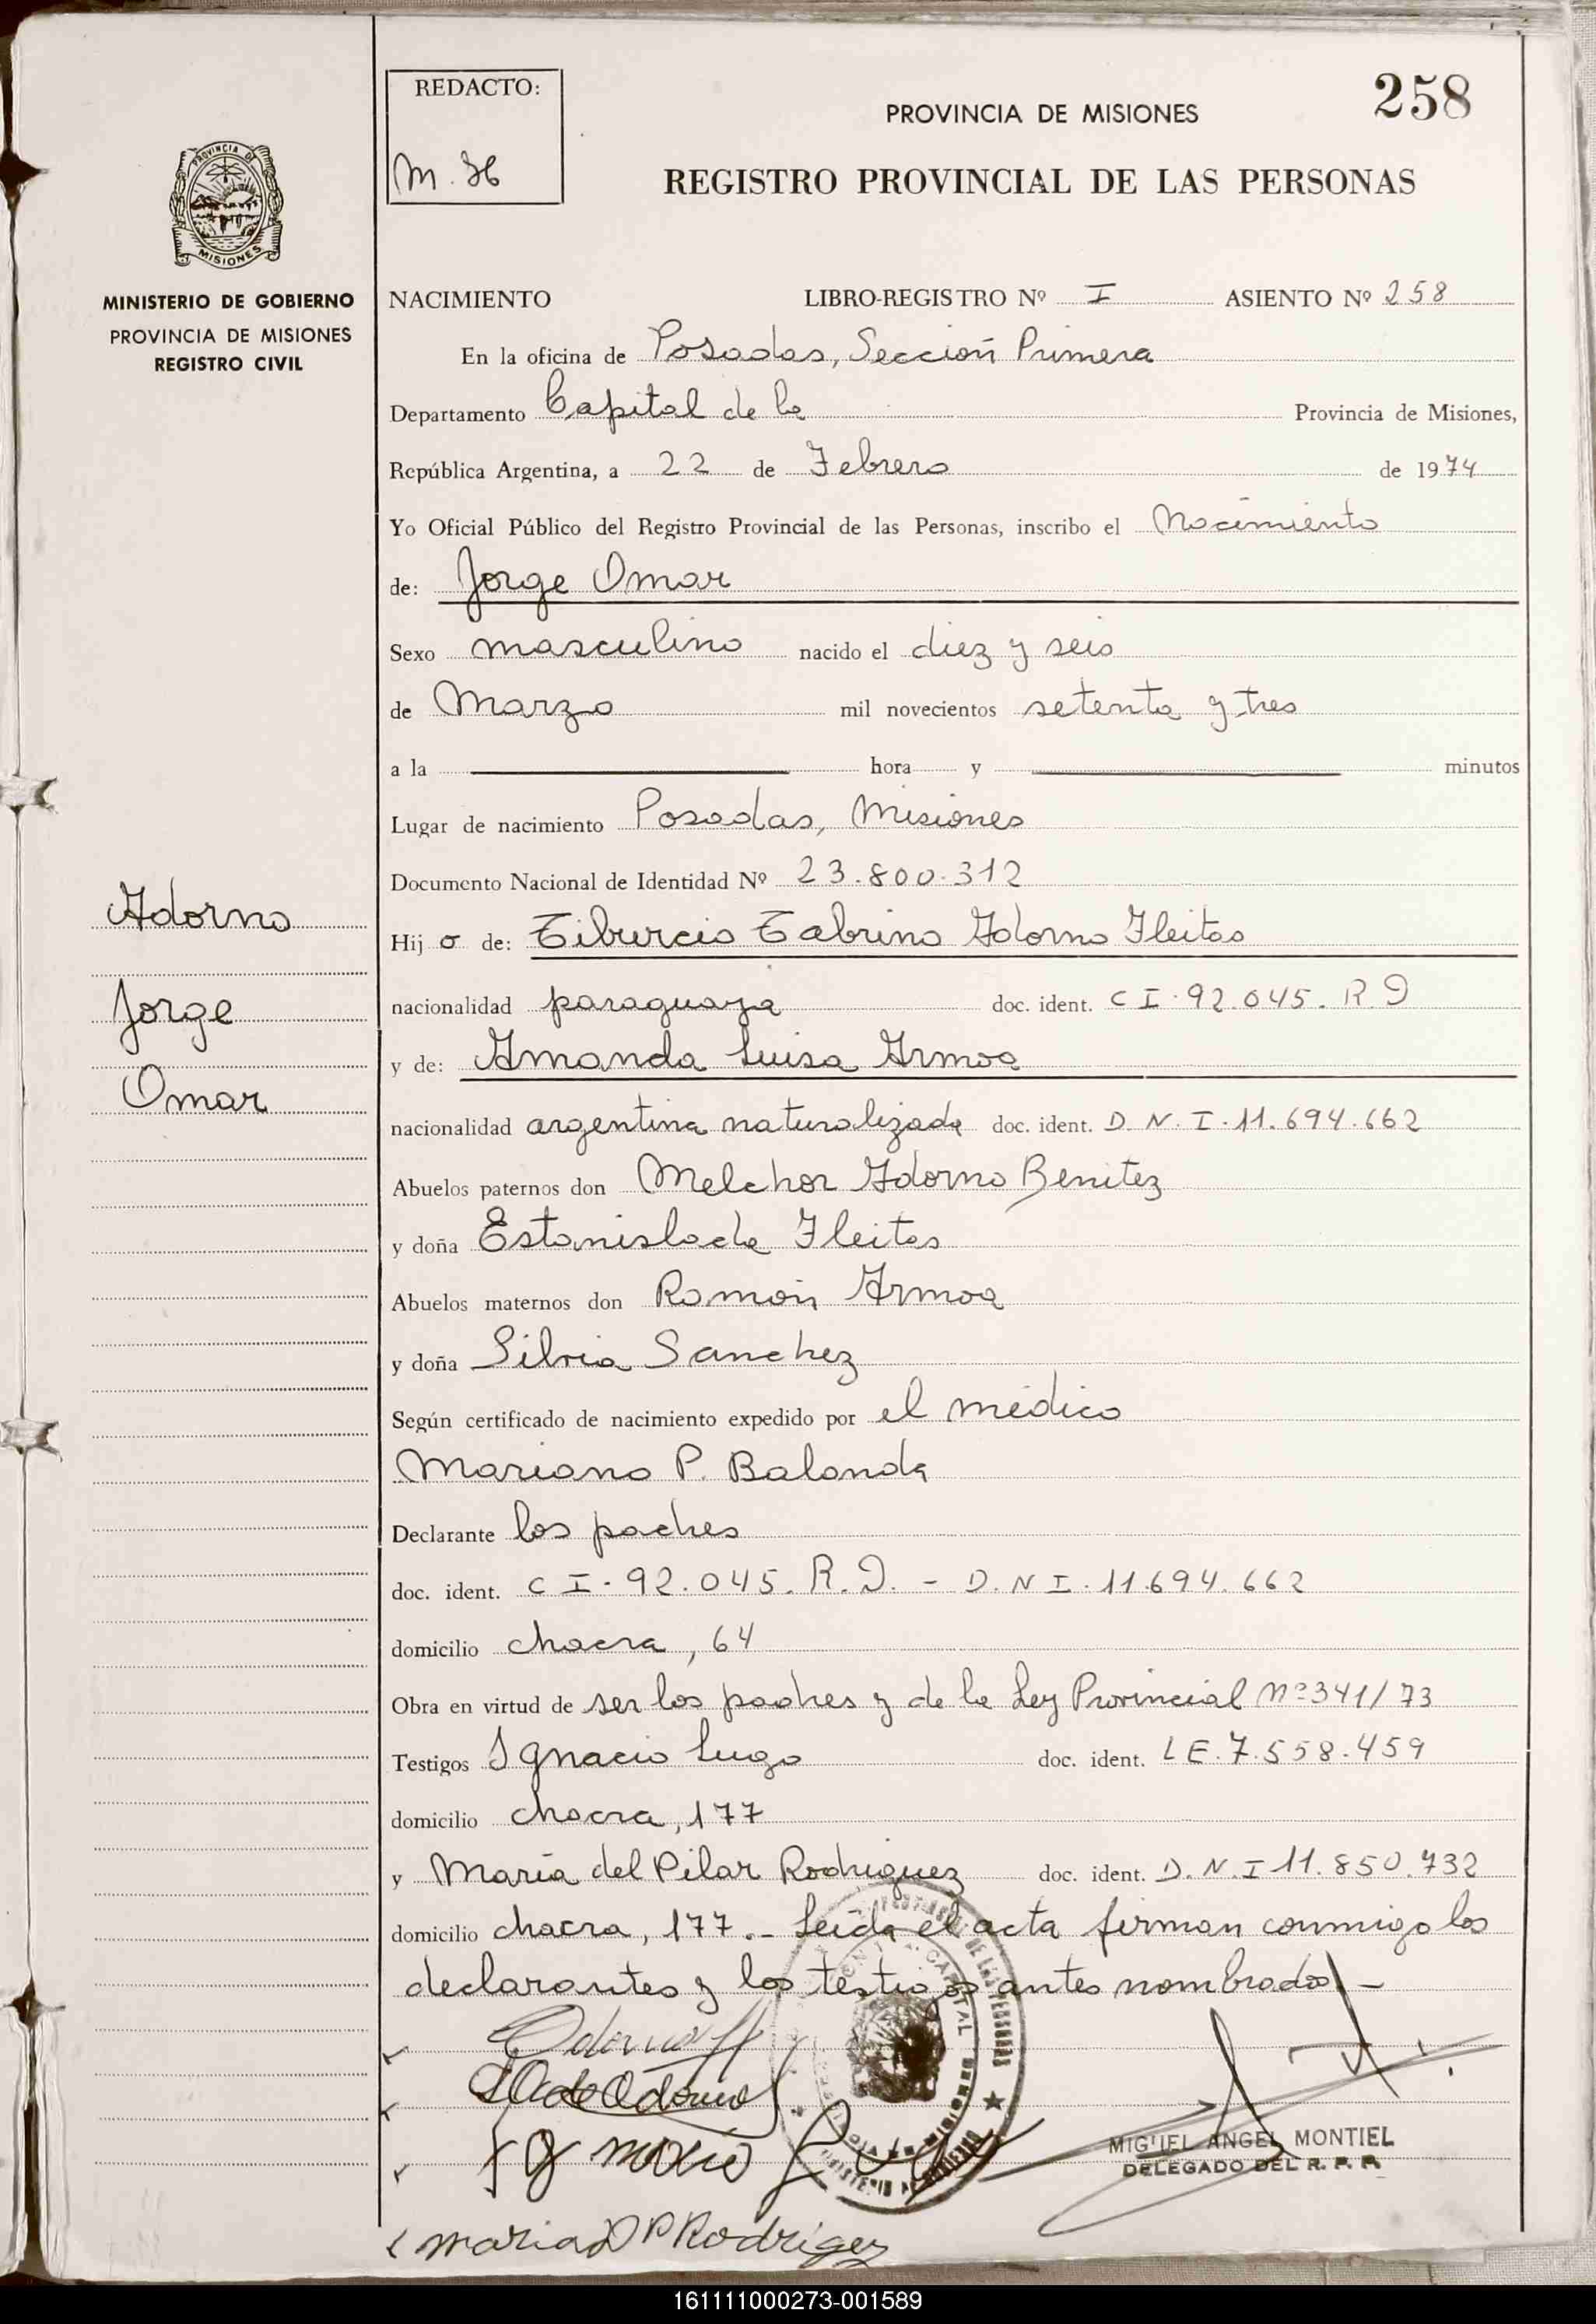 REDACTO:
M. 36
PROVINCIA DE MISIONES
258
REGISTRO PROVINCIAL DE LAS PERSONAS
PROVINCIA D
MISIONES
MINISTERIO DE GOBIERNO
PROVINCIA DE MISIONES
REGISTRO CIVIL
NACIMIENTO LIBRO-REGISTRO Nº I ASIENTO Nº 258
En la oficina de Posadas, Sección Primera
Departamento Capital de la Provincia de Misiones,
República Argentina, a 22 de Febrero de 1974
Yo Oficial Público del Registro Provincial de las Personas, inscribo el Nacimiento
de: Jorge Omar
Sexo masculino nacido el diez y seis
de Marzo mil novecientos setenta y tres
a la hora y minutos
Lugar de nacimiento Posadas, Misiones
Documento Nacional de Identidad Nº 23.800.312
Adorno
Jorge
Omar
Hijo de: Tiburcio Tabrino Adorno Fleitas
nacionalidad paraguaya doc. ident. C I. 92.045. R. D
y de: Amanda Luisa Armoa
nacionalidad argentina naturalizada doc. ident. D. N. I. 11.694.662
Abuelos paternos don Melchor Adorno Benitez
y doña Estanislada Fleitas
Abuelos maternos don Ramón Armoa
y doña Silvia Sanchez
Según certificado de nacimiento expedido por el médico
Mariano P. Balanda
Declarante los padres
doc. ident. C I. 92.045. R. D. - D. N I. 11.694.662
domicilio chacra, 64
Obra en virtud de ser los padres y de la Ley Provincial Nº 341/73
Testigos Ignacio Lugo doc. ident. L E. 7.558.459
domicilio chacra, 177
y María del Pilar Rodriguez doc. ident. D. N. I 11.850.732
domicilio chacra, 177.- Leida el acta firman conmigo los
declarantes y los testigos antes nombrados.-
Adorno
de Adorno
Ignacio Lugo
MIGUEL ANGEL MONTIEL
DELEGADO DEL R. P. P.
maria D P Rodrigez
161111000273-001589